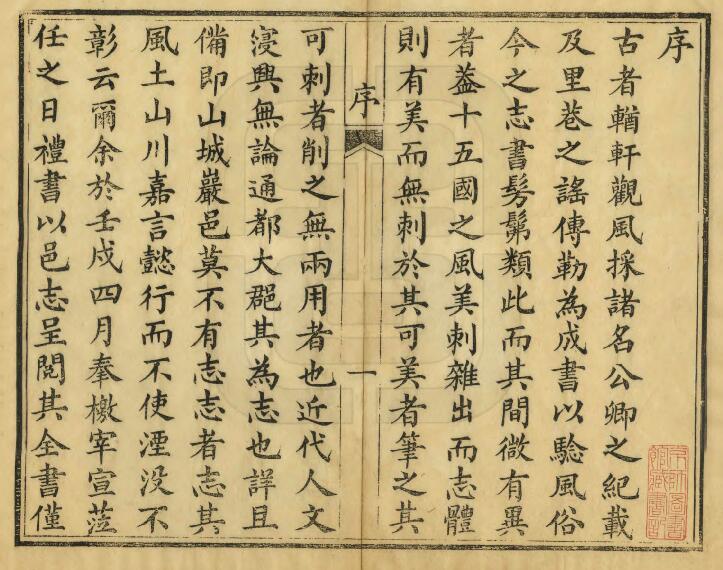 序
古者輶軒觀風採諸名公卿之紀載
及里巷之謠傳勒為成書以騐風俗
今之志書髣髴類此而其間微有異
者葢十五國之風美刺雜出而志體
則有美而無刺於其可美者筆之其
序 一
可刺者削之無兩用者也近代人文
寖興無論通都大郡其為志也詳且
備即山城巖邑莫不有志志者志其
風土山川嘉言懿行而不使湮没不
彰云爾余於壬戌四月奉檄宰宣蒞
任之日禮書以邑志呈閱其全書僅